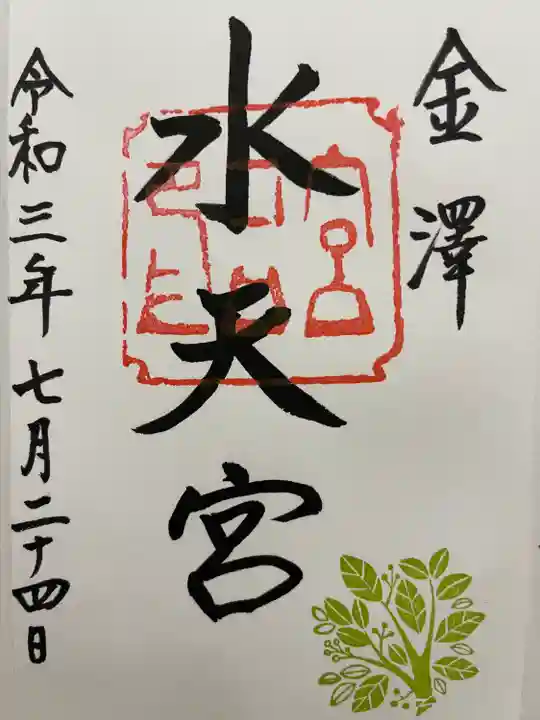 金澤
水天宮
令和三年七月二十四日